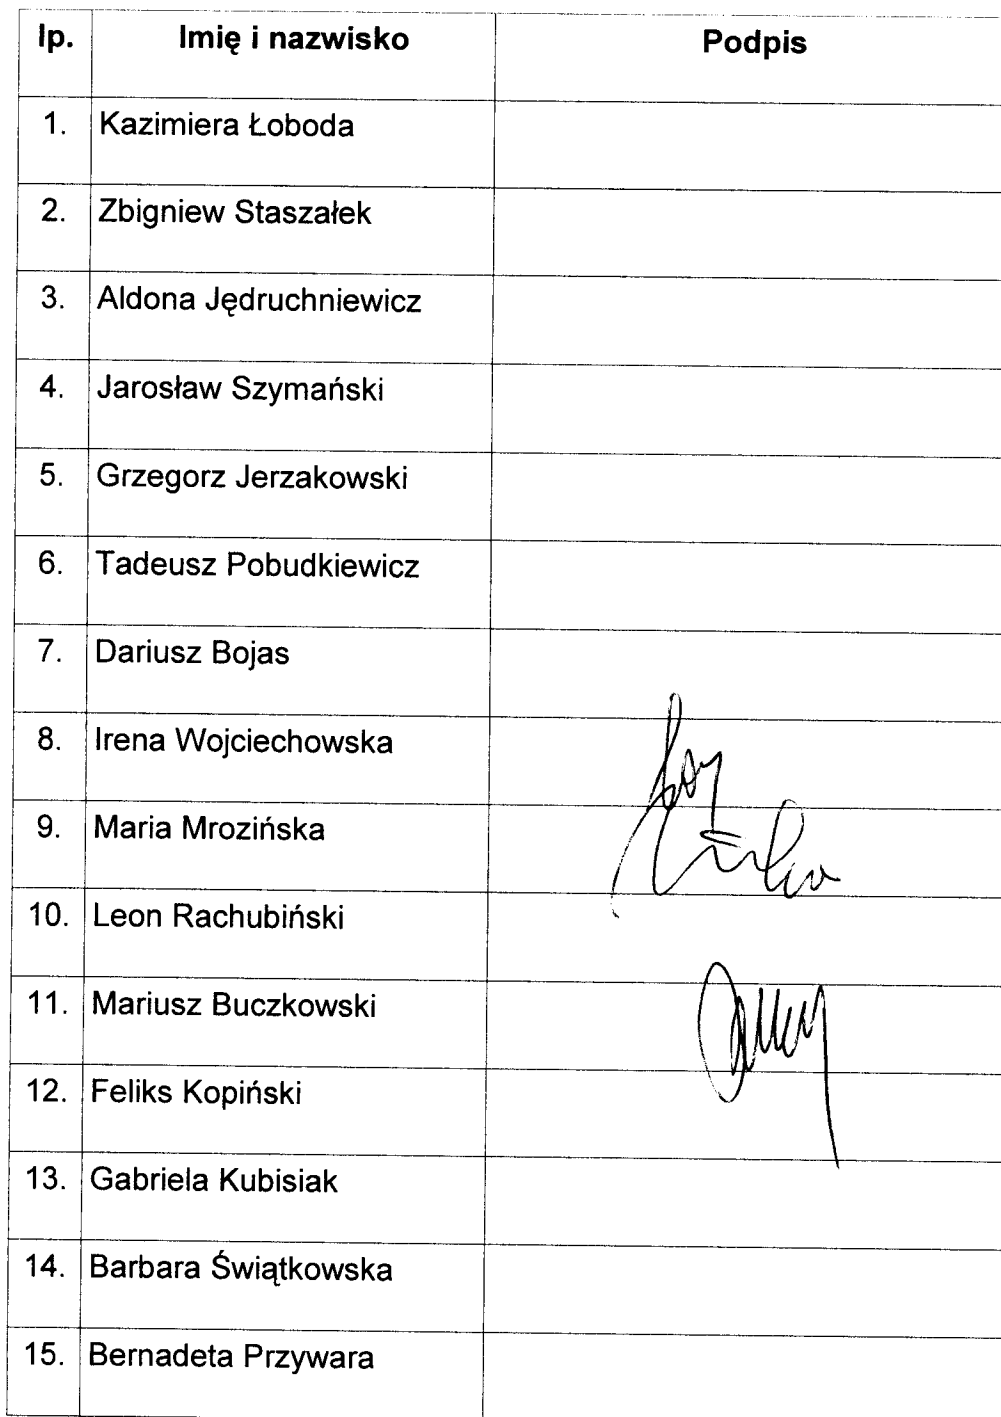 lp. Imię i nazwisko Podpis
1. Kazimiera Łoboda
2. Zbigniew Staszałek
3. Aldona Jędruchniewicz
4. Jarosław Szymański
5. Grzegorz Jerzakowski
6. Tadeusz Pobudkiewicz
7. Dariusz Bojas
8. Irena Wojciechowska
9. Maria Mrozińska
10. Leon Rachubiński
11. Mariusz Buczkowski
12. Feliks Kopiński
13. Gabriela Kubisiak
14. Barbara Świątkowska
15. Bernadeta Przywara